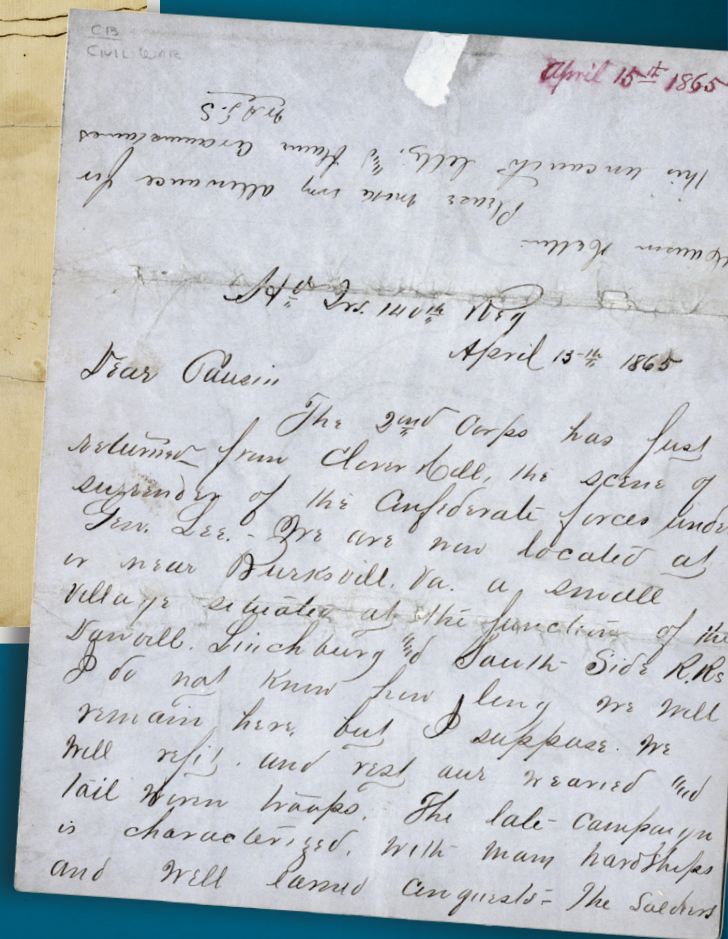 CB
CIVIL WAR
April 15th 1865
This uncouth letter, and blame circumstances
Please make any allowance for
April 15th 1865
Dear Cousin
The 2nd Corps has just
returned from Clover Hill, the scene of
surrender of the Confederate forces unde
Gen. Lee. - We are now located at
or near Burksvill. Va. a small
village situated at the junction of the
Danvill. Linchburg and South Side R.Rs
I do not know how long we will
remain here, but I suppose. we
will refit. and rest our wearied and
toil worn troops. The late campaign
is characterized. with many hardships
and well earned conquests - The Soldiers